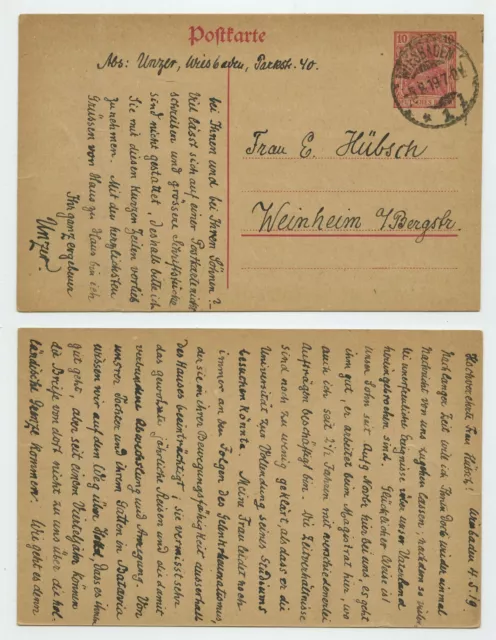 Postkarte
Abs: Unzer, Wiesbaden, Parkstr. 40.
10 10
WIESBADEN
Frau E. Hübsch
Weinheim a/Bergstr.
bei Ihnen und bei Ihren Söhnen? -
Viel lässt sich auf einer Postkarte nicht
schreiben und grössere Schriftstücke
sind nicht gestattet, deshalb bitte ich
Sie mit diesen kurzen Zeilen vorlieb
zu nehmen. Mit den herzlichsten
Grüssen von Haus zu Haus bin ich
Ihr ganz ergebener
Unzer.
Hochverehrte Frau Hübsch! Wiesbaden 4.5.19
Nach langer Zeit will ich Ihnen doch wieder einmal
Nachricht von uns zugehen lassen, nachdem so viele
unerfreuliche Ereignisse über unser Vaterland
hereingebrochen sind. Glücklicher Weise ist
unser Sohn seit Novbr hier bei uns, es geht
ihm gut, er arbeitet beim Magistrat hier wo
auch ich seit 2½ Jahren mit
Aufträgen beschäftigt bin. Die Zeitverhältnisse
sind noch zu wenig geklärt, als dass er die
Universität zur Vollendung seines Studiums
besuchen könnte. Meine Frau leidet noch
immer an den Folgen des Gelenkrheumatismus,
der sie in ihrer Bewegungsfähigkeit ausserhalb
des Hauses beeinträchtigt, sie vermisst sehr
das gewohnte jährliche Reisen und die damit
verbundene Abwechslung und Anregung. Von
unsrer Tochter und ihrem Gatten in Batavia
wissen wir auf dem Weg über Holld, dass es ihnen
gut geht, aber seit einem Vierteljahr können
die Briefe von dort nicht zu uns über die hol-
ländische Grenze kommen. Wie geht es denn